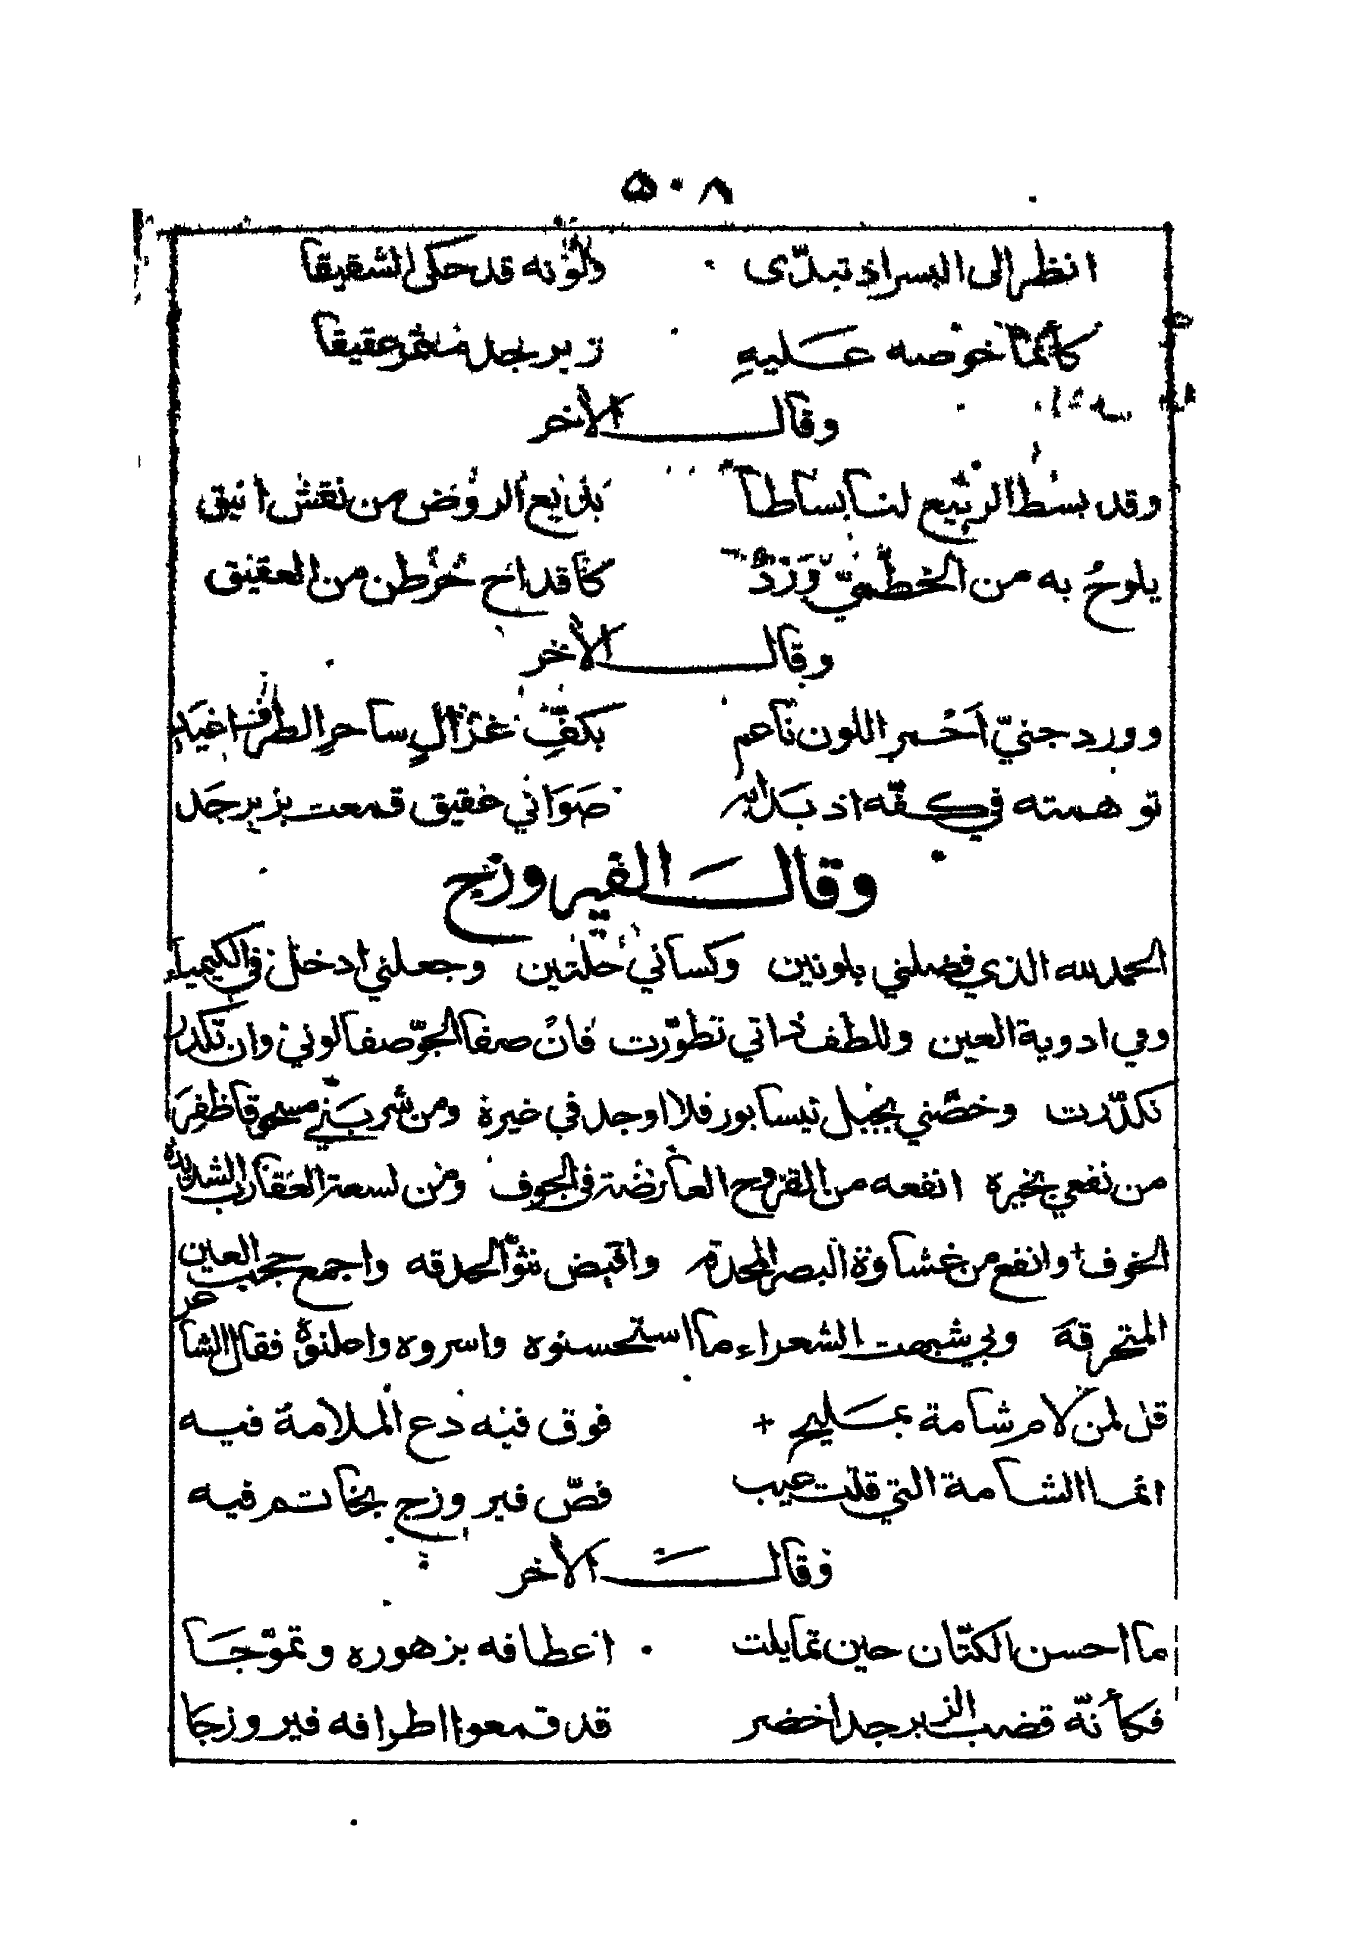 ٥٠٨
انظر الى البسر اذ تبدّى ولونه قد حكى الشقيقا
كأنما خوصه عليه زبرجد مثمر عقيقا
وقال الآخر
وقد بسط الربيع لنا بساطا بديع الروض من نقش انيق
يلوح به من الخطميّ ورد كأقداح خرطن من العقيق
وقال الآخر
وورد جنيّ احمر اللون ناعم بكفّ غزال ساحر الطرف اغيد
توهمته في كفّه اذ بدا به صواني عقيق قمعت بزبرجد
وقال الفيروزج
الحمد لله الذي فضلني بلونين وكساني حلتين وجعلني ادخل في الكيمياء
وفي ادوية العين وللطف ذاتي تطوّرت فان صفا الجوّ صفا لوني وان تكدر
تكدّرت وخصّني بجبل نيسابور فلا اوجد في غيره ومن شربني مسحوقا ظفر
من نفعي بخيره انفعه من القروح العارضة في الجوف ومن لسعة العقارب الشديدة
الخوف وانفع من غشاوة البصر المحدقه واقبض نتوّ الحدقه واجمع حجب العين
المنخرقة وبي شبهت الشعراء ما استحسنوه واسروه واعلنوه فقال الشاعر
قل لمن لام شامة بمليح فوق فيه دع الملامة فيه
انما الشامة التي قلت عيب فصّ فيروزج بخاتم فيه
وقال الآخر
ما احسن الكتّان حين تمايلت اعطافه بزهوره وتموّجا
فكأنّه قضب الزبرجد اخضر قد قمعوا اطرافه فيروزجا